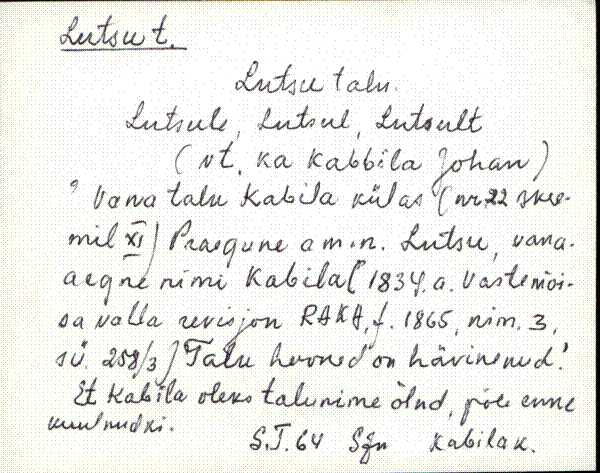 Lutsu t.
Lutsu talu.
Lutsule, Lutsul, Lutsult
(vt. ka Kabbila Johan)
" Vana talu Kabila külas (nr 22 skee-
mil XI) Praegune am.n. Lutsu, vana-
aegne nimi Kabila [1834. a. Vastemõi-
sa valla revisjon RAKA, f. 1865, nim. 3,
sü. 258/3] Talu hooned on hävinenud."
Et Kabila oleks talunime õlnd, põle enne
kuulnudki.
S.T. 64 Sjn Kabila k.